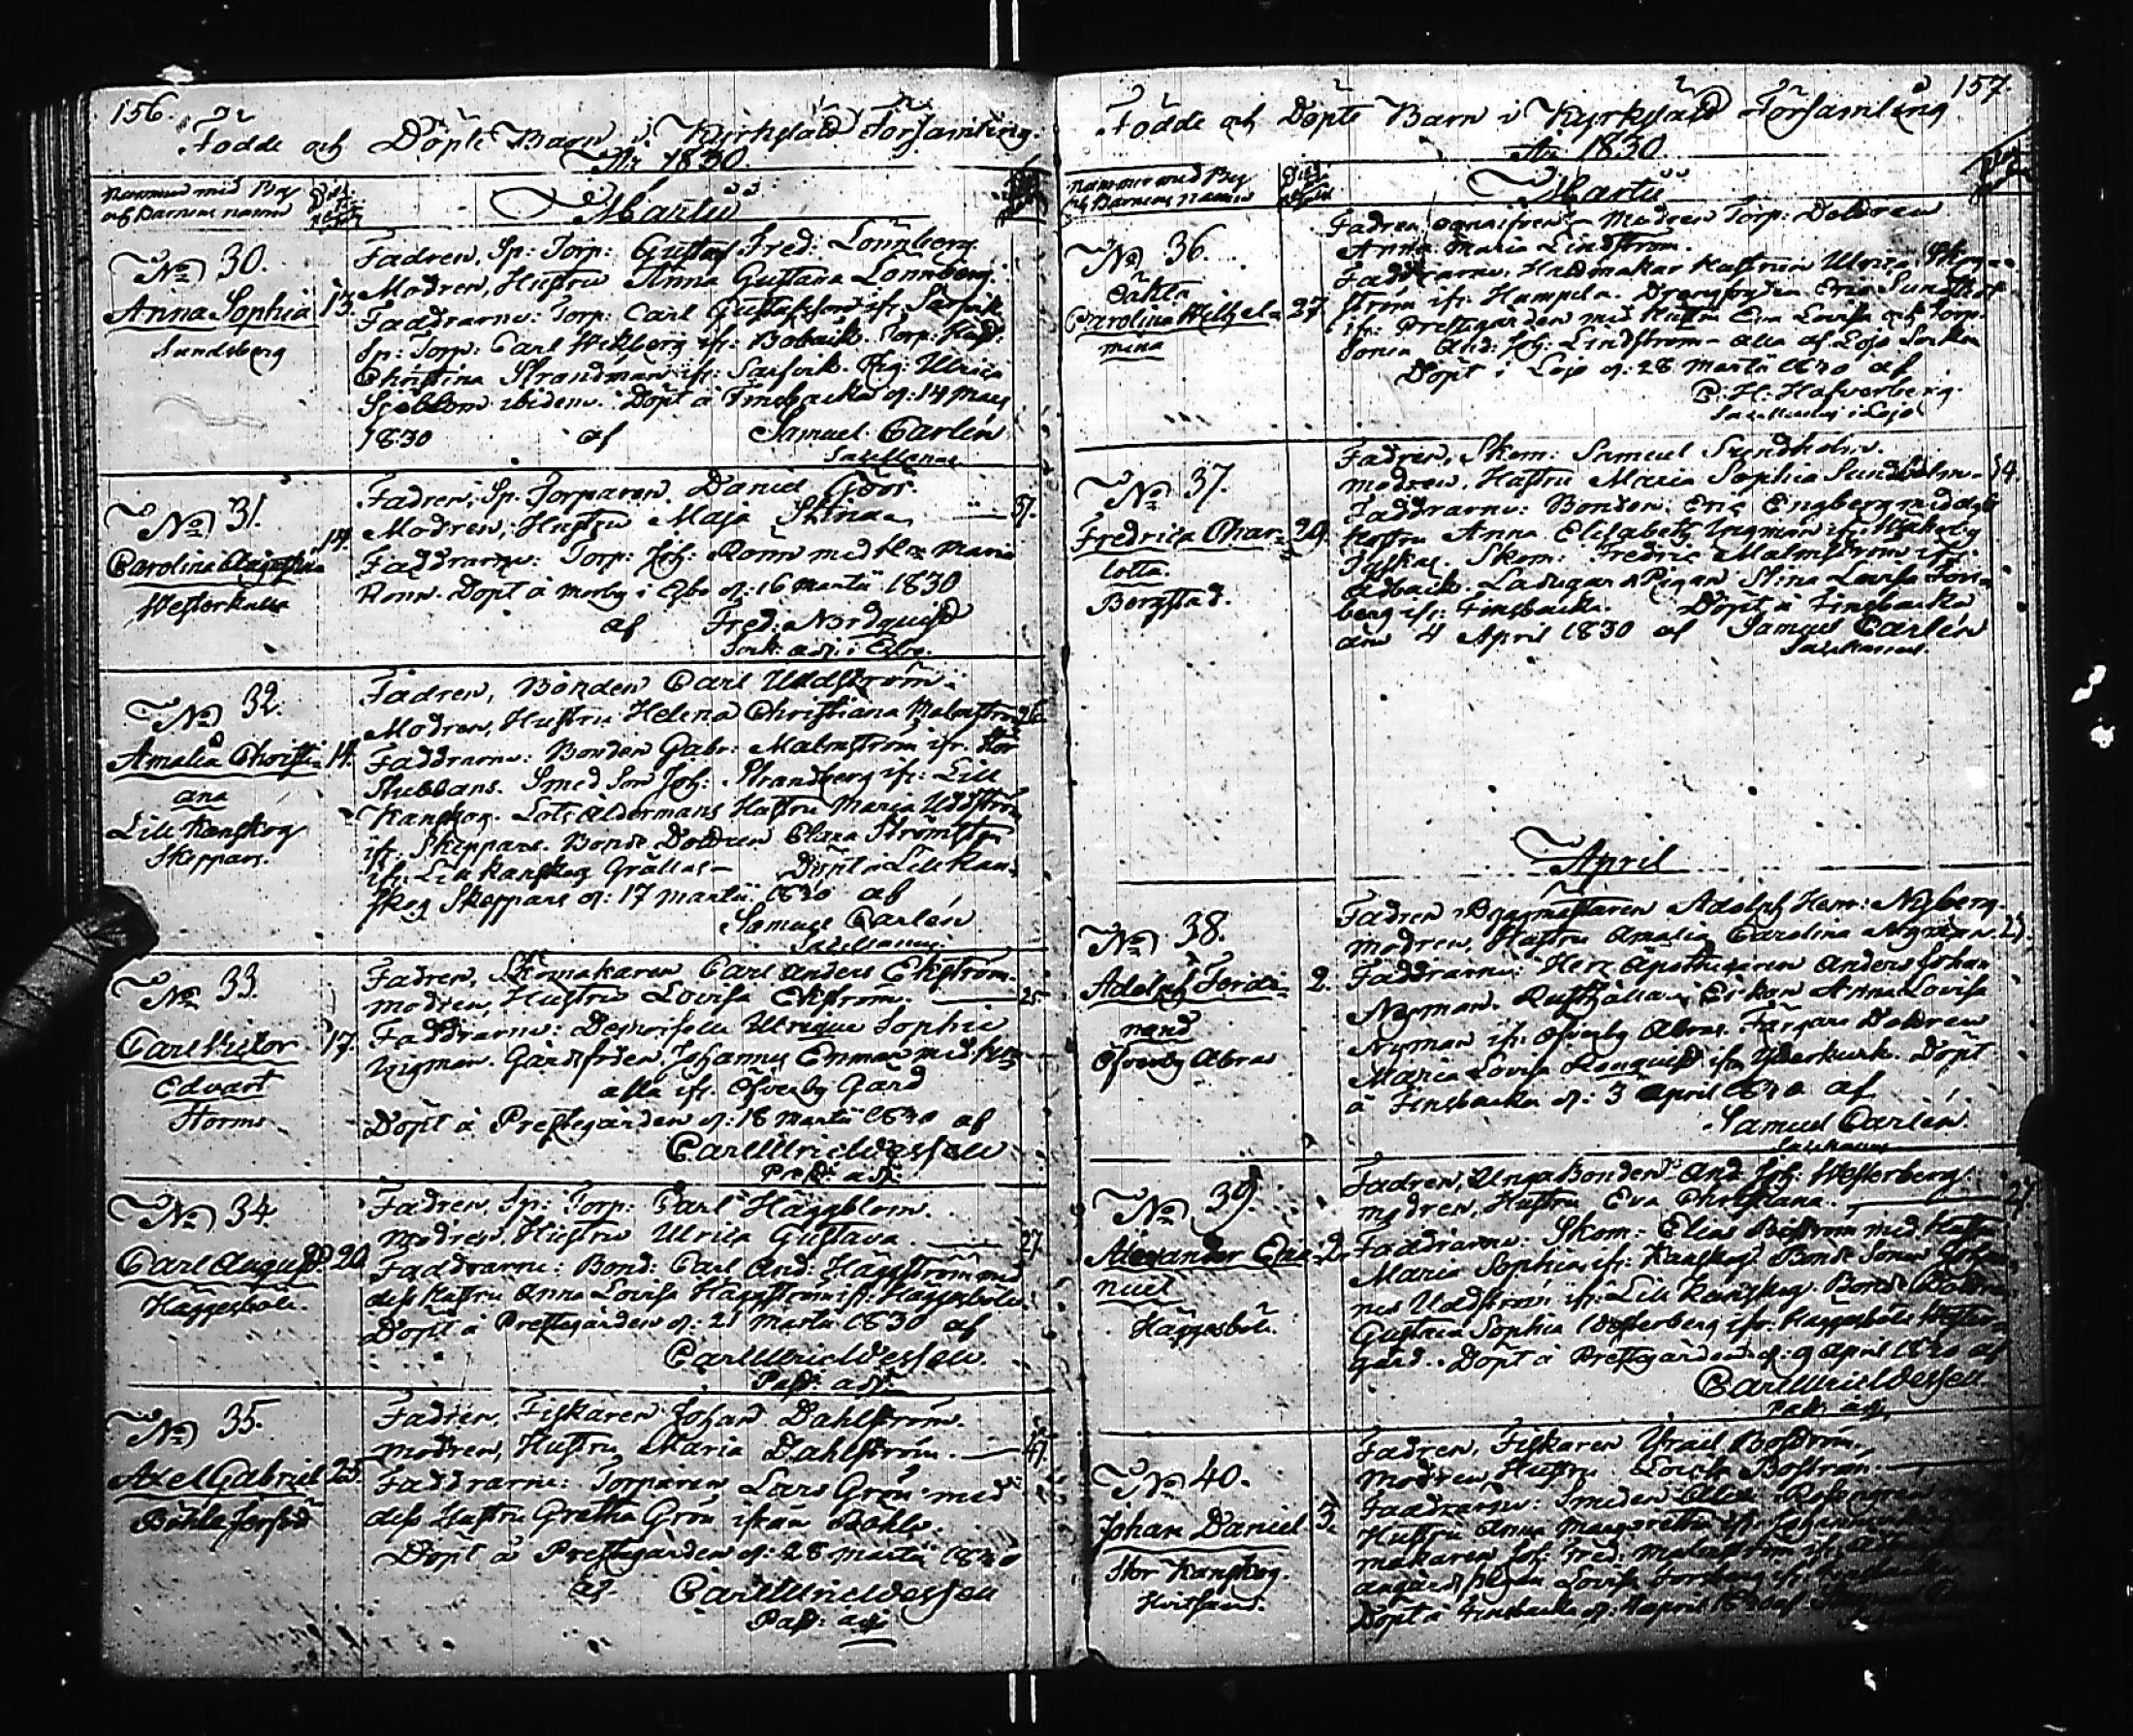 156.
Födde och Döpte Barn i Kyrkslätt Församling.
År 1830.
Nummer med By
och Barnens namn
Martii
No 30.
Anna Sophia
Sundsberg
13.
Fadren, Sp: Torp: Gustaf Fred: Lönnberg
Modren, Hustru Anna Gustava Lönnberg.
Faddrarne: Torp: Carl Gustafsson ifr: Sarfvik
Sp: Torp: Carl Wekberg ifr: Bobäck. Torp: Hust:
Christina Strandman ifr: Sarfvik. Pig: Ulrica
Sjöblom ibidem. Döpt å Finsbacka d: 14 Mars
1830 af Samuel Carlén
Sacellanus
No 31.
Carolina Augusta
Westerkulla
14.
Fadren, Sp. Torparen, Daniel
Modren, Hustru Maja Stina 37.
Faddrarne: Torp: Joh: Rönn med Hu Maria
Rönn. Döpt å Morby i Esbo d: 16 Martii 1830
af Fred: Nordquist
Sock: adj: i Esbo.
No 32.
Amalia Christi-
ana
Lill Kanskog
Skeppars.
14.
Fadren, Bonden Carl Uddström.
Modren, Hustru Helena Christiana Malmström 26.
Faddrarne: Bonden Gabr: Malmström ifr. Stor
Stubbans. Smed Son Joh: Strandberg ifr: Lill
Kanskog. Lots Åldermans Hustru Maria Uddström
ifr. Skeppars. Bonde Dottren Clara Strömsten
ifr: Lill Kanskog Grällas- Döpt å Lill Kan-
skog Skeppars d: 17 Martii 1830 af
Samuel Carlén
Sacellanus.
No 33.
Carl Victor
Edvart
Storms
17.
Fadren, Skomakaren Carl Anders Ekström.
Modren, Hustru Lovisa Ekström. 25
Faddrarne: Demoiselle Ulrique Sophie
Wigman. Gårdsfogden Johannes Enman med Hu
alla ifr. Öfverby Gård
Döpt å Prestegården d: 18 Martii 1830 af
Carl Ulric Wessell
Past: adj:
No 34.
Carl August
Häggesböle.
20.
Fadren, Sp: Torp: Carl Häggblom.
Modren, Hustru Ulrica Gustava. 27
Faddrarne: Bond: Carl And: Häggström med
dess Hustru Anna Lovisa Häggström ifr: Häggesböle
Döpt å Prestegården d: 21 Martii 1830 af
Carl Ulric Wessell.
Past: adj:
No 35.
Axel Gabriel
25.
Fadren, Fiskaren Johan Dahlström.
Modren, Hustru Maria Dahlström. 41.
Faddrarne: Torparen Lars Grön med
dess Hustru Gretha Grön ifrån Båhls.
Döpt å Prestegården d: 28 Martii 1830
af Carl Ulric Wessell
Past: adj
157.
Födde och Döpte Barn i Kyrkslätt Församling
År 1830
Nummer med By
och Barnens Namn
Martii
No 36.
Oäkta
Carolina Wilhel-
mina
27.
Fadren - Modren Torp: Dottren
Anna Maria Lindström.
Faddrarne. Hattmakar Hustrun Ulrica
ström ifr: Humpila. Drengfogden Eric Sundström
ifr: Prestegården med Hustru Eva Lovisa och Torp-
Sonen And: Joh: Lindström- alla af Lojo Sockn
Döpt i Lojo d: 28 Martii 1830 af
C. H. Hafverberg.
Sacellanus i Lojo
No 37.
Fredrica Char-
lotta.
Bergstad.
29.
Fadren, Skom: Samuel Sundholm.
Modren, Hustru Maria Sophia Sundholm. 34.
Faddrarne: Bonden Eric Engberg med dess
Hustru Anna Elisabeth Ingman ifr:
Tyskas. Skom: Fredric Malmström ifr:
Edbäck. Ladugårds Pigan Stina Lovisa Fors-
berg ifr: Finsbacka. Döpt å Finsbacka
den 4 April 1830 af Samuel Carlén
Sacellanus.
April
No 38.
Adolph Ferdi-
nand
Öfverby Abras
2.
Fadren Byggmästaren Adolph Herm: Nyberg.
Modren, Hustru Amalia Carolina 23.
Faddrarne: Herr Apothecaren Anders Johan
Nyman. Rusthållar Enkan Anna Lovisa
Nyman ifr: Öfverby Abras. Färgare Dottren
Maria Lovisa Renquist ifr Ytterkurk. Döpt
å Finsbacka d: 3 April 1830 af
Samuel Carlén.
Sacellanus
No 39.
Alexander Ema-
nuel
Häggesböle.
2.
Fadren, Unga Bonden And. Joh: Westerberg.
Modren, Hustru Eva Christiana. 27
Faddrarne: Skom: Elias Boström med Hustru
Maria Sophia ifr: Kanskog. Bonde Sonen Johan-
nes Uddström ifr: Lill Kanskog. Bonde Dottren
Gustava Sophia Westerberg ifr. Häggesböle Wester-
gård. Döpt å Prestegården d: 9 April 1830 af
Carl Ulric Wessell.
Past: adj:
No 40.
Johan Daniel
Stor Kanskog.
Hvitsand.
3.
Fadren, Fiskaren Israel Boström.
Modren, Hustru Lovisa Boström.
Faddrarne: Smeden Rosengren
Hustru Anna Margaretha ifr:
makaren Joh: Fred: Malmström ifr:
Lovisa Forsberg ifr: Finsbacka
Döpt å Finsbacka d: 4 April 1830 af Samuel